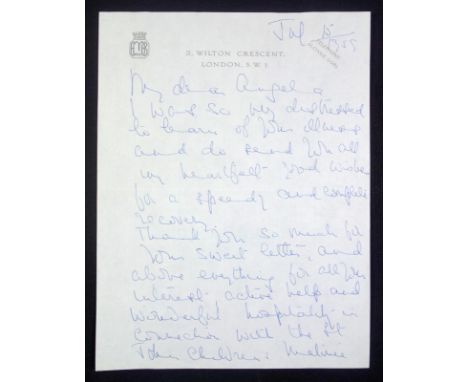 Jul 15/1955
2, WILTON CRESCENT,
LONDON, S.W.1.
My dear Angela
I was so very distressed
to learn of your illness
and do send you all
my heartfelt good wishes
for a speedy and complete
recovery
Thank you so much for
your sweet letter, and
above everything for all your
interest active help and
wonderful hospitality in
connection with the St
John Children's